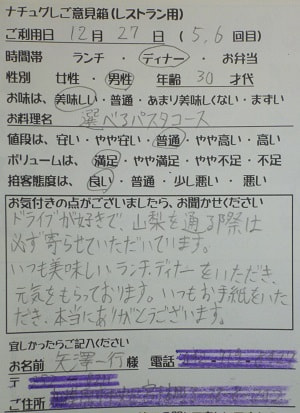 ナチュグしご意見箱(レストラン用)
ご利用日 12月 27日 (5,6回目)
時間帯 ランチ ・ ディナー ・ お弁当
性別 女性 ・ 男性 年齢 30 才代
お味は、美味しい・普通・あまり美味しくない・まずい
お料理名 選べるパスタコース
値段は、安い・やや安い・普通・やや高い・高い
ボリュームは、満足・やや満足・やや不足・不足
接客態度は、良い・普通・少し悪い・悪い
お気付きの点がございましたら、お聞かせください
ドライブが好きで、山梨を通る際は
必ず寄らせていただいています。
いつも美味しいランチ、ディナーをいただき、
元気をもらっております。いつもお手紙をいた
だき、本当にありがとうございます。
宜しかったらご記入ください
お名前 矢澤一行 様 電話
〒
ご住所